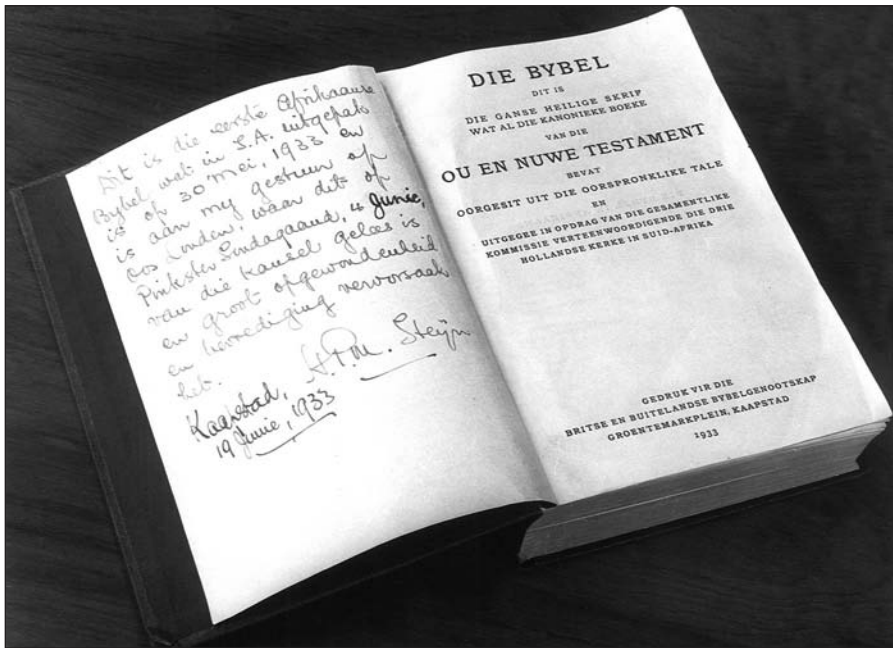 Dit is die eerste Afrikaanse
Bybel wat in S.A. uitgepak
is op 30 Mei, 1933 en
is aan my gestuur op
Oos Londen, waar dit op
Pinkster Sondagaand, 4 Junie,
van die kansel gelees is
en groot opgewondenheid
en bevrediging veroorsaak
het.
H.P.M. Steijn
Kaapstad,
19 Junie, 1933
DIE BYBEL
DIT IS
DIE GANSE HEILIGE SKRIF
WAT AL DIE KANONIEKE BOEKE
VAN DIE
OU EN NUWE TESTAMENT
BEVAT
OORGESIT UIT DIE OORSPRONKLIKE TALE
EN
UITGEGEE IN OPDRAG VAN DIE GESAMENTLIKE
KOMMISSIE VERTEENWOORDIGENDE DIE DRIE
HOLLANDSE KERKE IN SUID-AFRIKA
GEDRUK VIR DIE
BRITSE EN BUITELANDSE BYBELGENOOTSKAP
GROENTEMARKPLEIN, KAAPSTAD
1933